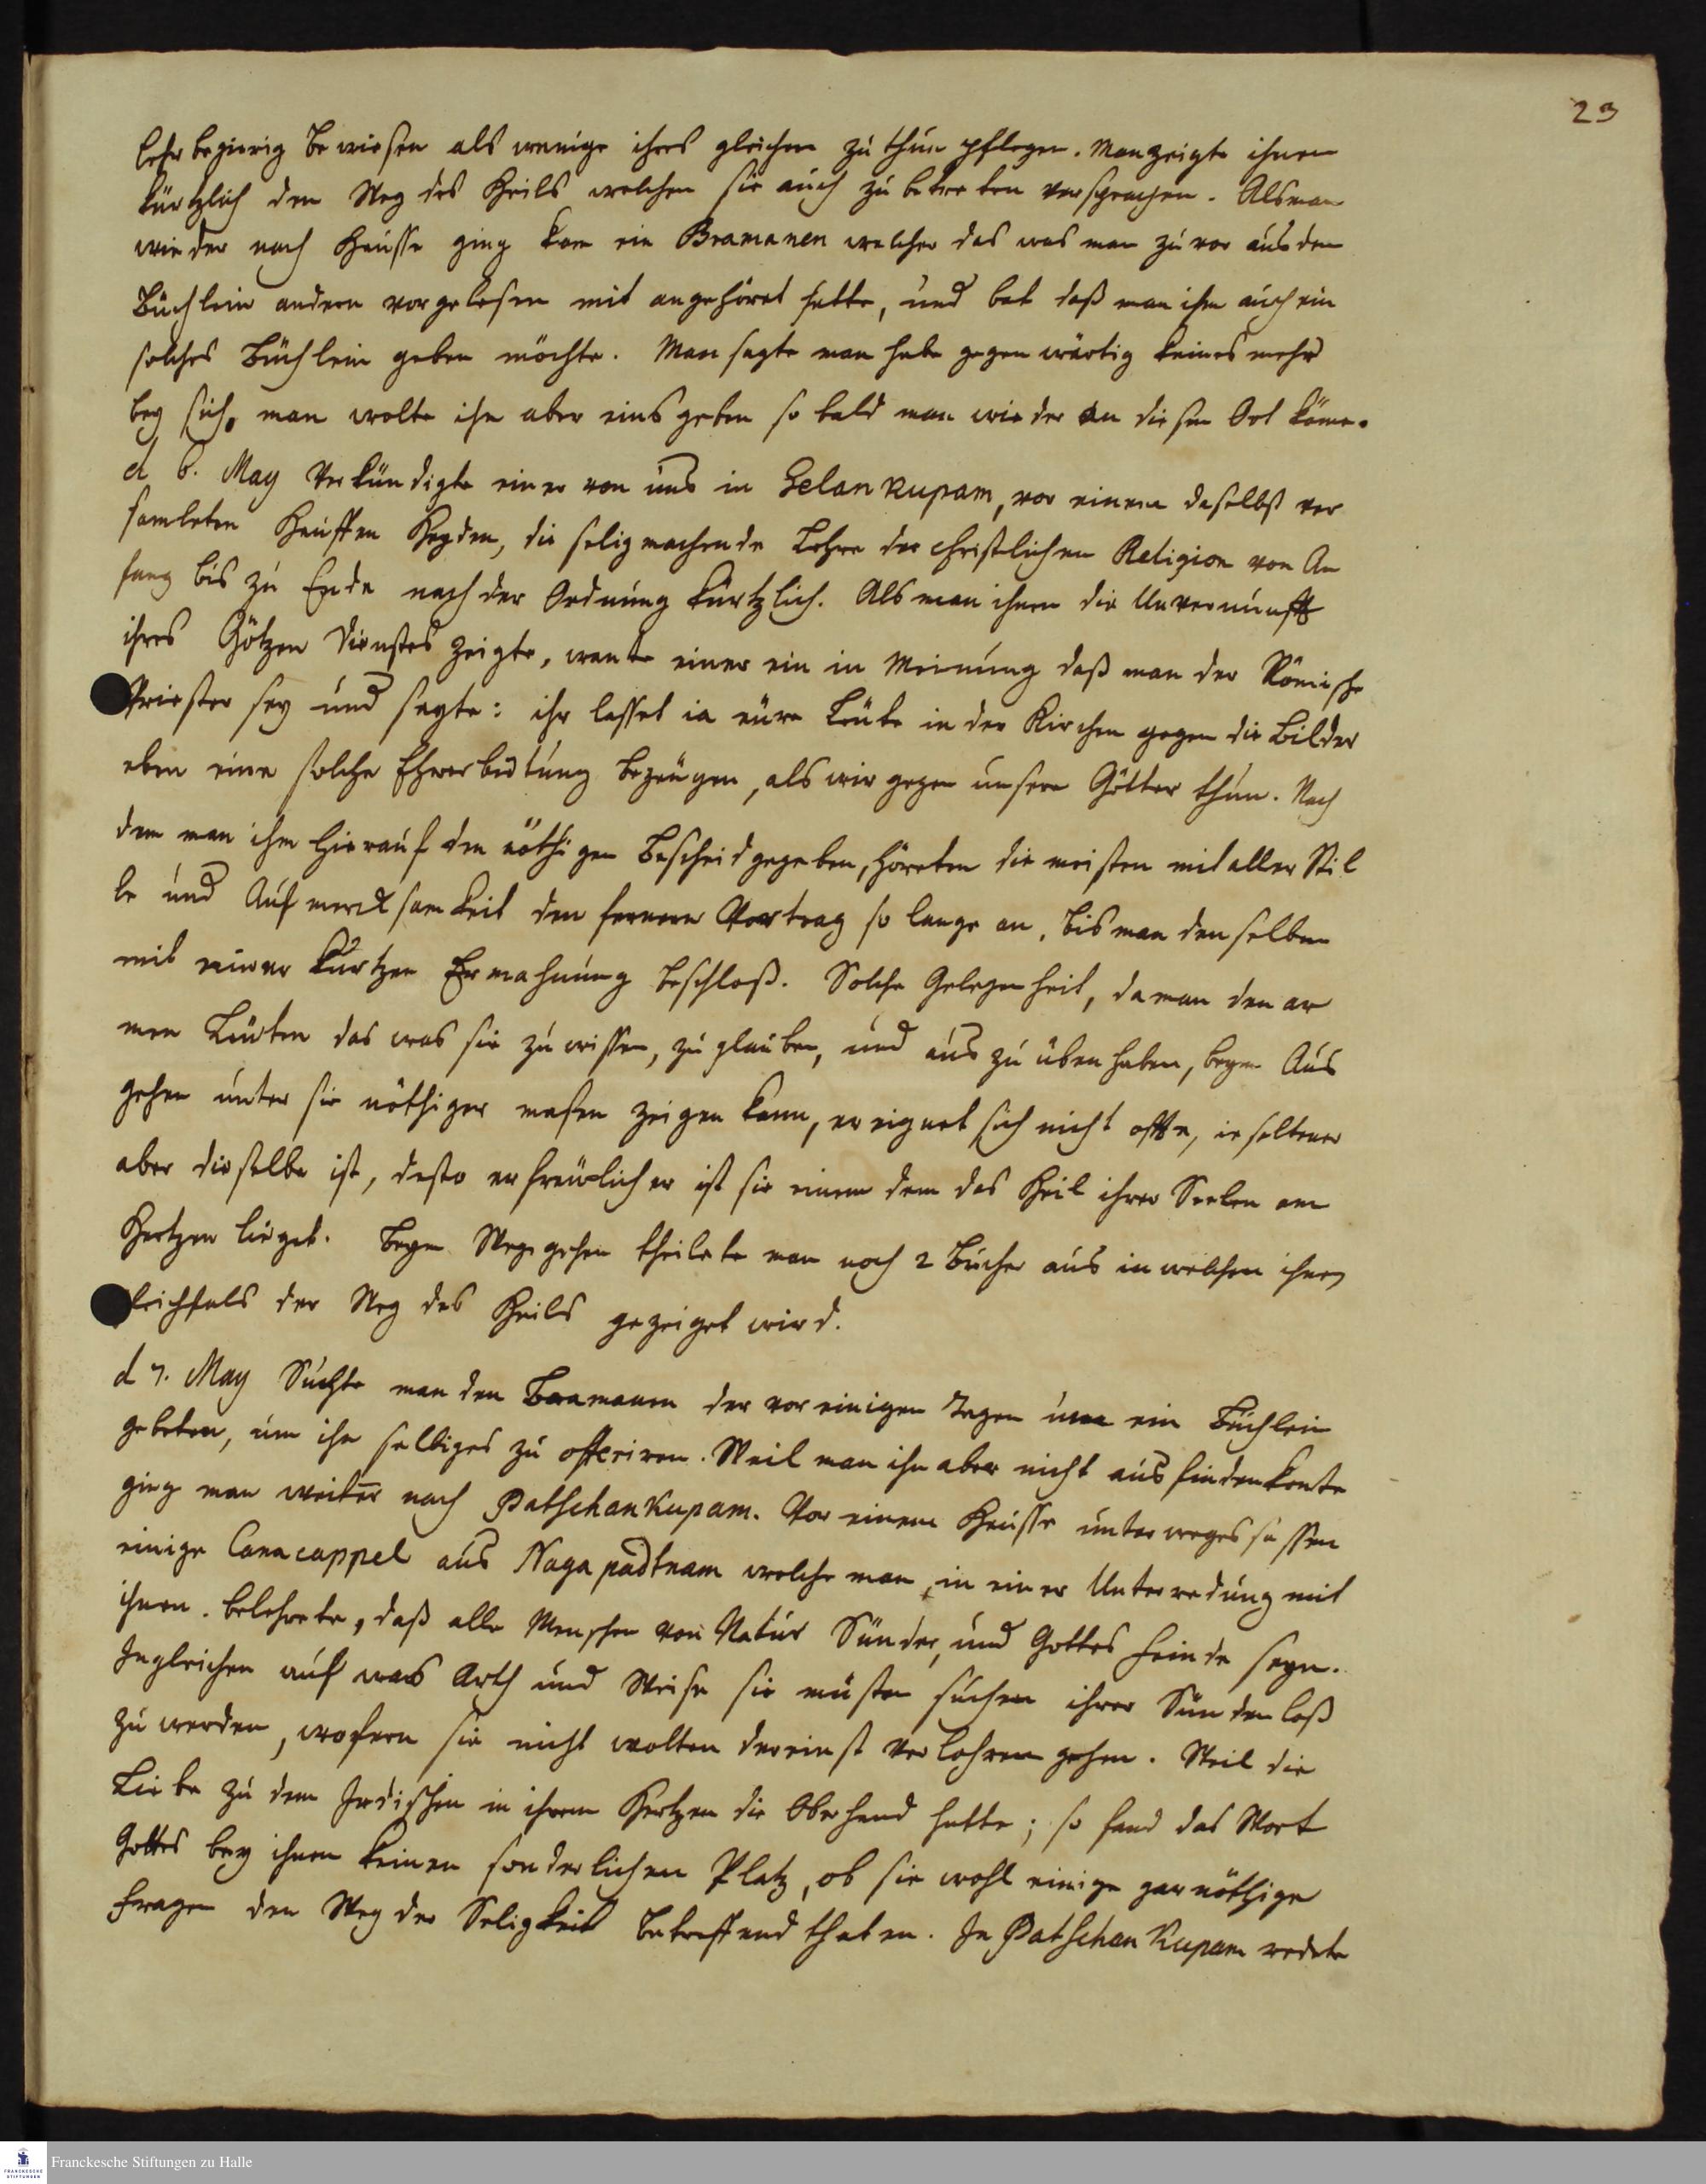 23
lehrbegierig bewiesen als wenige ihres gleichen zu thun pflegen. Man zeigte ihnen
kürtzlich den Weg des Heils welchen sie auch zu betreten versprachen. Als man
wieder nach Hausse ging kam ein Bramanen welcher das was man zuvor aus dem
Büchlein andern vorgelesen mit angehöret hatte, und bat daß man ihm auch ein
solches Büchlein geben möchte. Man sagte man habe gegenwärtig keines mehr
bey sich, man wolte ihm aber eins geben so bald man wieder an diesen Ort käme.
d 6. May Verkündigte einer von uns in Selankupam, vor einem daselbst ver
samleten Hauffen Heyden, die seligmachende Lehre der christlichen Religion von An
fang bis zu Ende nach der Ordnung kürtzlich. Als man ihnen die Unvernunfft
ihres Götzen Dienstes zeigte, wante einer ein in Meinung daß man der Römische
Priester sey und sagte: ihr lasset ia eure Leute in der Kirchen gegen die Bilder
eben eine solche Ehrerbietung bezeugen, als wir gegen unsere Götter thun. Nach
dem man ihm hierauf den nöthigen Bescheid gegeben, höreten die meisten mit aller Stil
le und Aufmercksamkeit den fernern Vortrag so lange an, bis man denselben
mit einer kurtzen Ermahnung beschloß. Solche Gelegenheit, da man den ar
men Leuten das was sie zu wissen, zu glauben, und aus zu üben haben, beym Aus
gehen unter sie nöthiger masen zeigen kann, ereignet sich nicht offte, ie seltener
aber dieselbe ist, desto erfreulicher ist sie einem dem das Heil ihrer Seelen am
Hertzen lieget. Beym Weggehen theilete man noch 2 Bücher aus in welchen ihnen
leichfals der Weg des Heils gezeiget wird.
d 7. May Suchte man den Bramanen der vor einigen Tagen um ein Büchlein
gebeten, um ihm selbiges zu offeriren. Weil man ihn aber nicht ausfinden konte
ging man weiter nach Patschankupam. Vor einem Hausse unterweges sassen
einige Canacappel aus Nagapadtnam welche man, in einer Unterredung mit
ihnen belehrete, daß alle Menschen von Natur Sünder, und Gottes Feinde seyn.
Ingleichen auf was Arth und Weise sie müsten suchen ihrer Sünden loß
zu werden, wofern sie nicht wolten dereinst verlohren gehen. Weil die
Liebe zu dem Irdischen in ihrem Hertzen die Oberhand hatte; so fand das Wort
Gottes bey ihnen keinen sonderlichen Platz, ob sie wohl einige gar nöthige
Fragen den Weg der Seligkeit betreffend thaten. In Patschankupam redete
Franckesche Stiftungen zu Halle